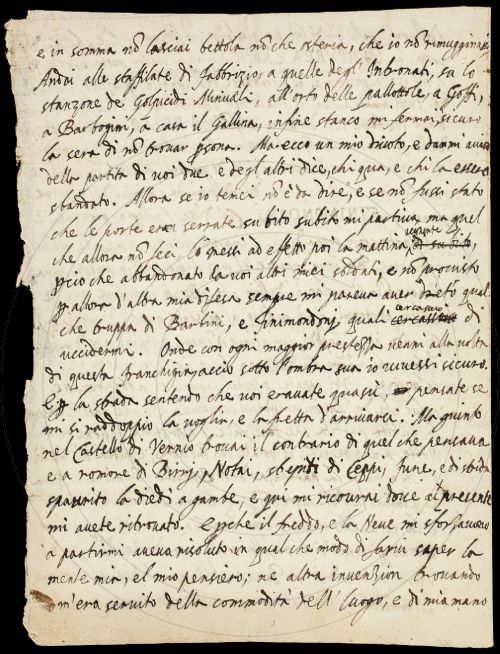 e in somma nõ lasciai bettola nõ che osteria, che io nõ rimuginassi
Andai alle staffilate di Fabbrizio, a quelle degl'Intronati, su lo
stanzone de Golpicidi Minuali, all'orto delle pallottole, a Goffi,
a Barbogini, a casa il Gallina, infine stanco mi fermai, sicuro
la sera di nõ trovar psona. Ma ecco un mio divoto, e dammi
della partita di voi due, e degl altri dice, chi qua, e chi la essersi
sbandato. Allora se io temei nõ è da dire, e se nõ fussi stato
che le porte eran serrate subito subito mi partiva, ma quel
che allora nõ feci, lo messi ad effetto poi la mattina vegnente
pcio che abbandonato da voi altri miei soldati, e nõ provisto
p allora d'altra mia difesa sempre mi pareva aver dreto qual
che truppa di Barbini, e Finimondoni, quali cercassero di
uccidermi. Onde con ogni maggior prestezza venni alla volta
di questa franchigia, acciò sotto l'ombra sua io vivessi sicuro.
E p la strada sentendo che voi eravate quassù, pensate se
mi si raddoppiò la voglia, e la fretta d'arrivarci. Ma giunto
nel Castello di Vernio trovai il contrario di quel che pensava
e a romore di Birri, Notai, stridi di Ceppi, fune, e di sbirri
spaurito la diedi a gambe, e qui mi ricovrai dove al presente
mi avete ritrovato. E pche il freddo, e la Neve mi sforzavano
a partirmi aveva risoluto in qual che modo di farvi saper la
mente mia, el mio pensiero; ne altra invenzion trovando
m'era servito della commodità dell' luogo, e di mia mano